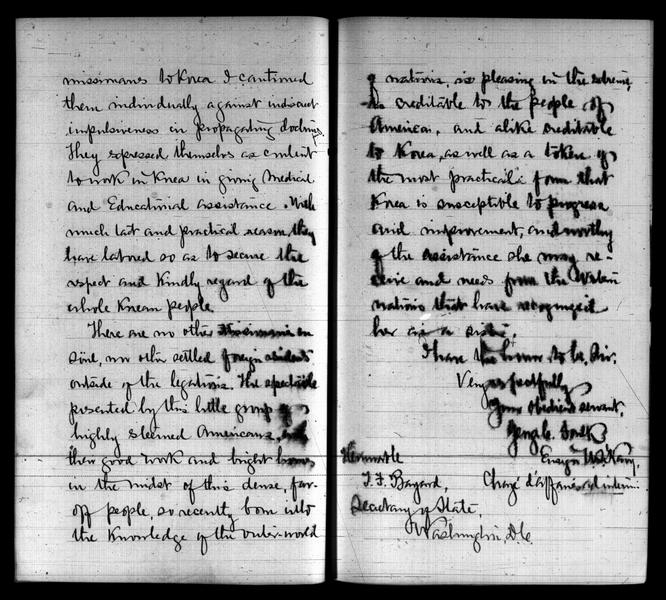 missionaries to Korea I cautioned
them individually against indiscreet
impulsiveness in propagating doctrines.
They expressed themselves as content
to work in Korea in giving Medical
and Educational assistance. With
much tact and practical reason they
have labored so as to secure the
respect and kindly regard of the
whole Korean people.
There are no other missionaries in
Söul, no other settled foreign residents
outside of the legations. The spectacle
presented by this little group of
highly esteemed Americans,
their good work and bright homes
in the midst of this dense, far-
off people, so recently born into
the knowledge of the outer-world
of nations, is pleasing in the extreme,
is creditable to the people of
America, and alike creditable
to Korea, as well as a token of
the most practical form that
Korea is susceptible to progress
and improvement, and worthy
of the assistance she may re-
ceive and needs from the Western
nations that have recognized
her as a sister.
I have the honor to be, Sir,
Very respectfully
Your obedient servant,
Geo. C. Foulk
Ensign U.S. Navy,
Chargé d'affaires ad interim
Honorable
T. F. Bayard,
Secretary of State,
Washington, D.C.